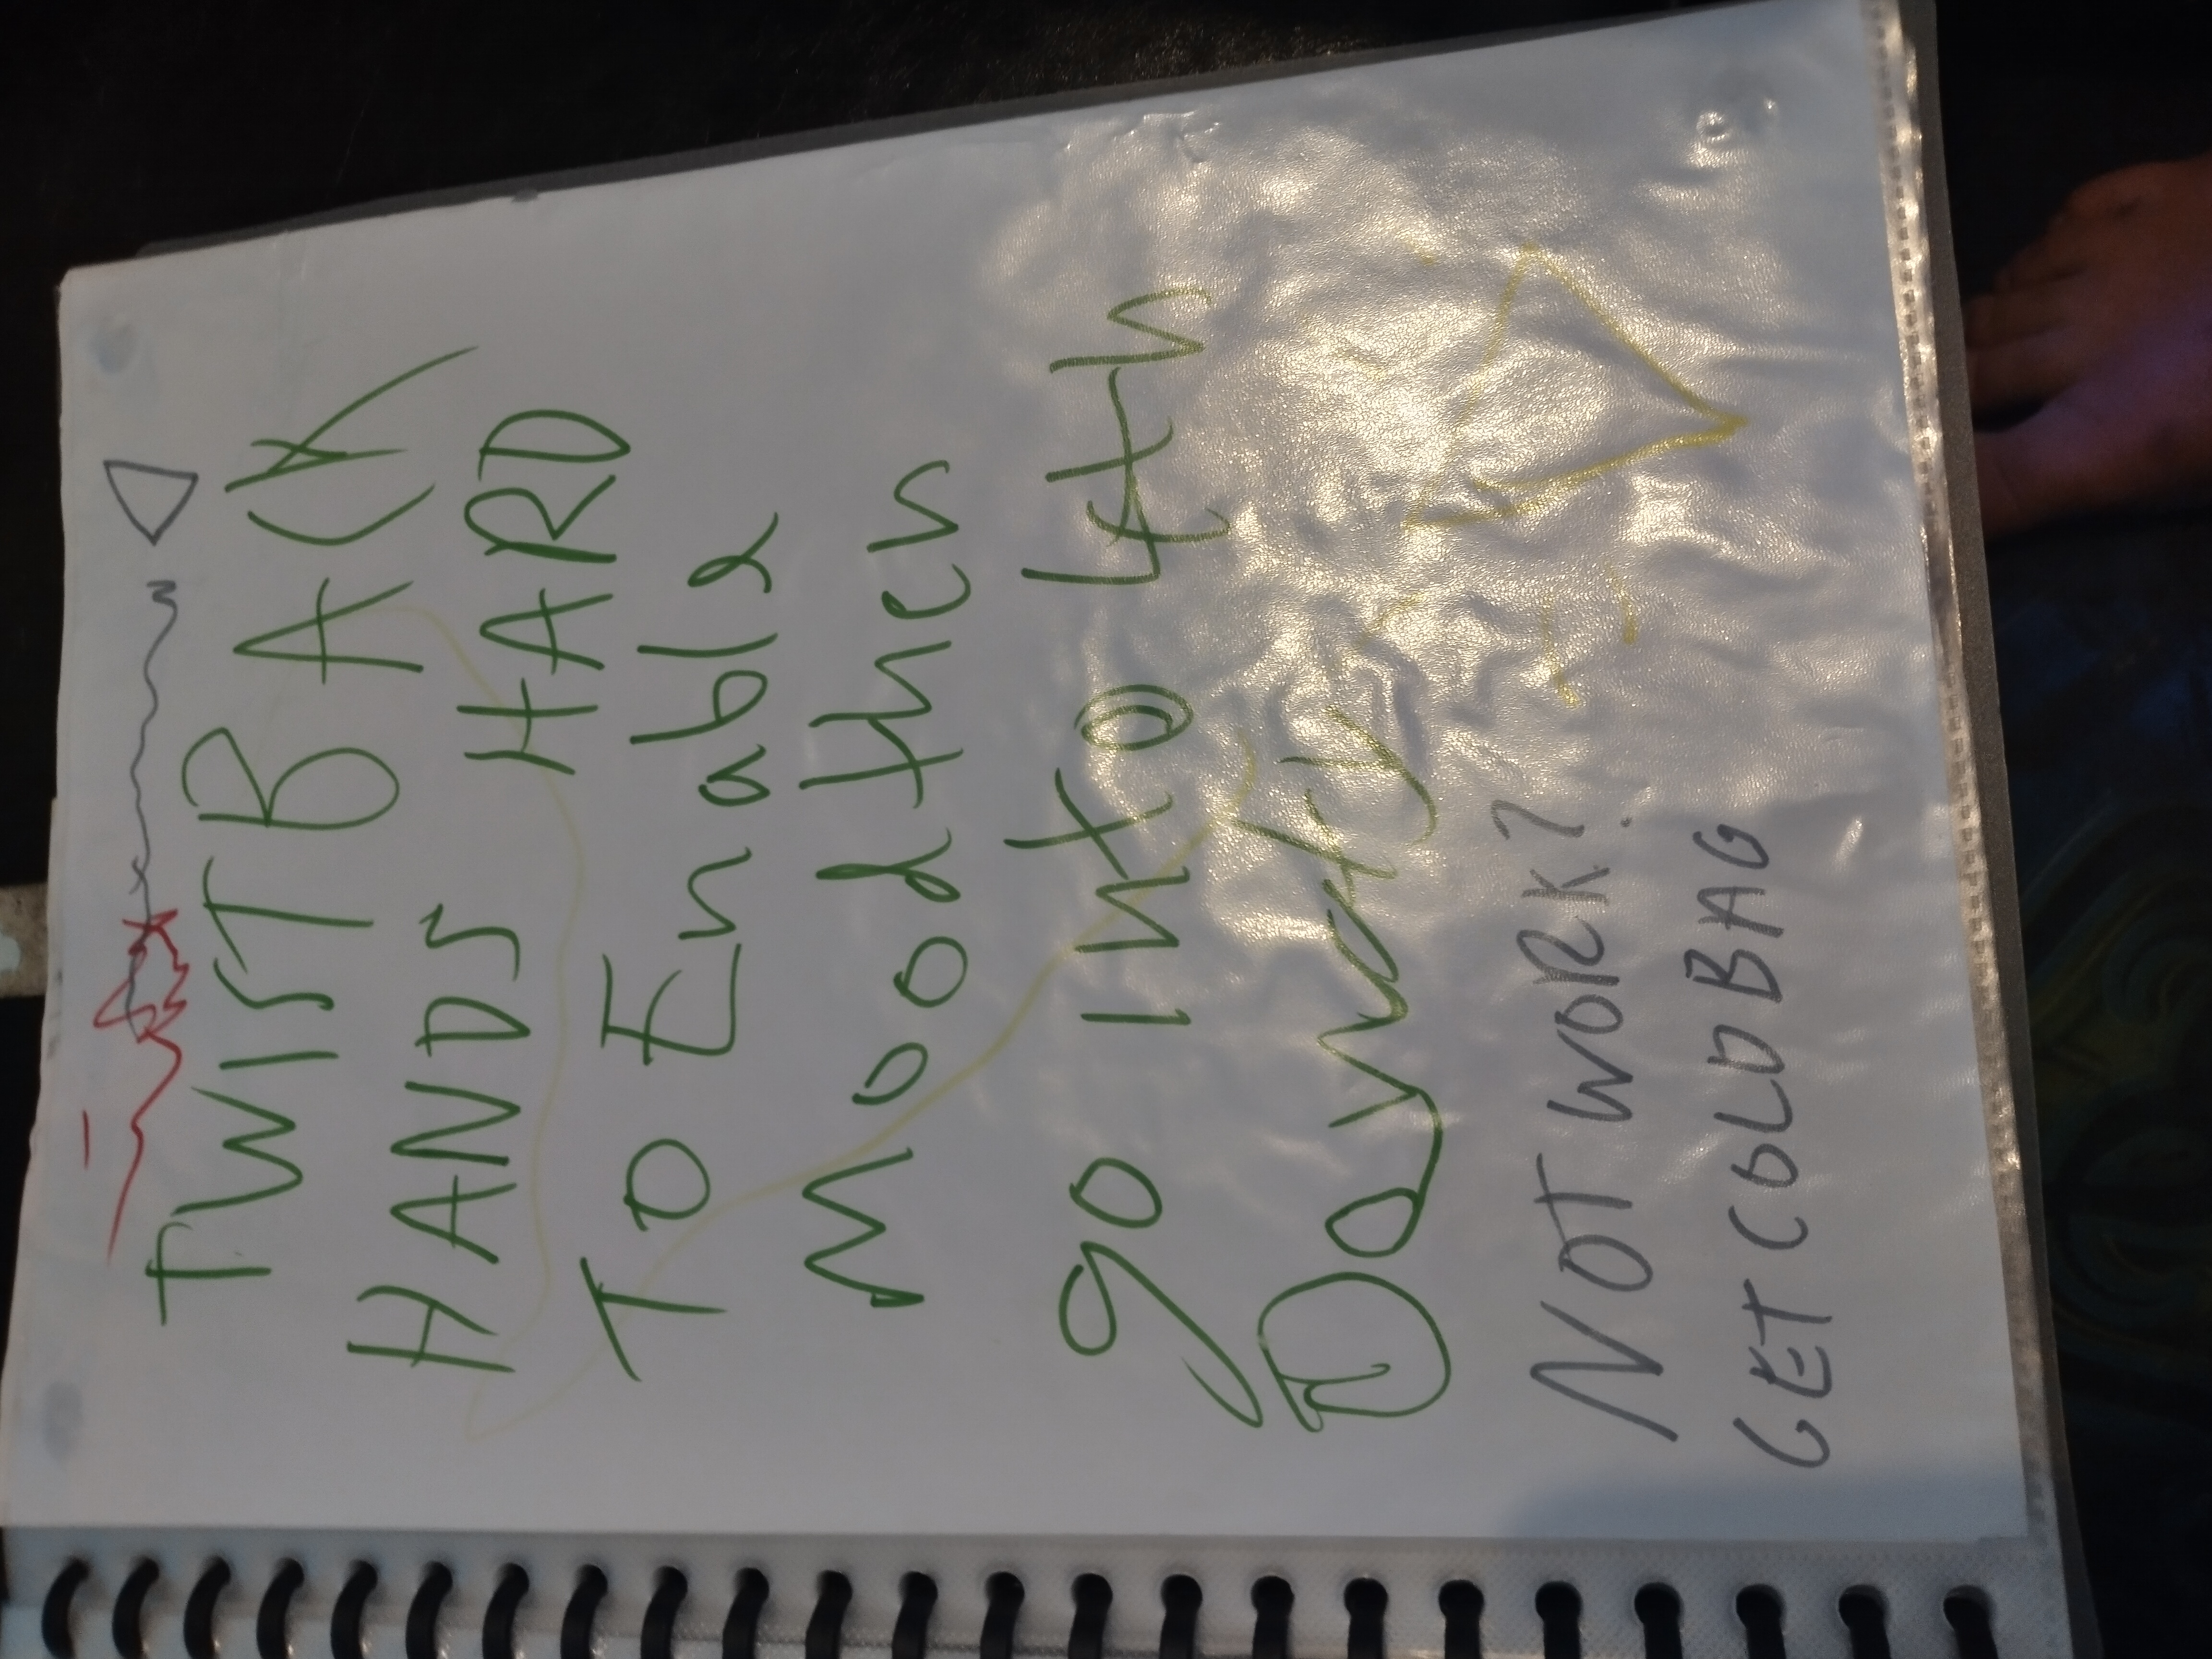 TWIST BACK
HANDS HARD
To Enable
Mood then
go into
Not WORK?
GET COLD BAG